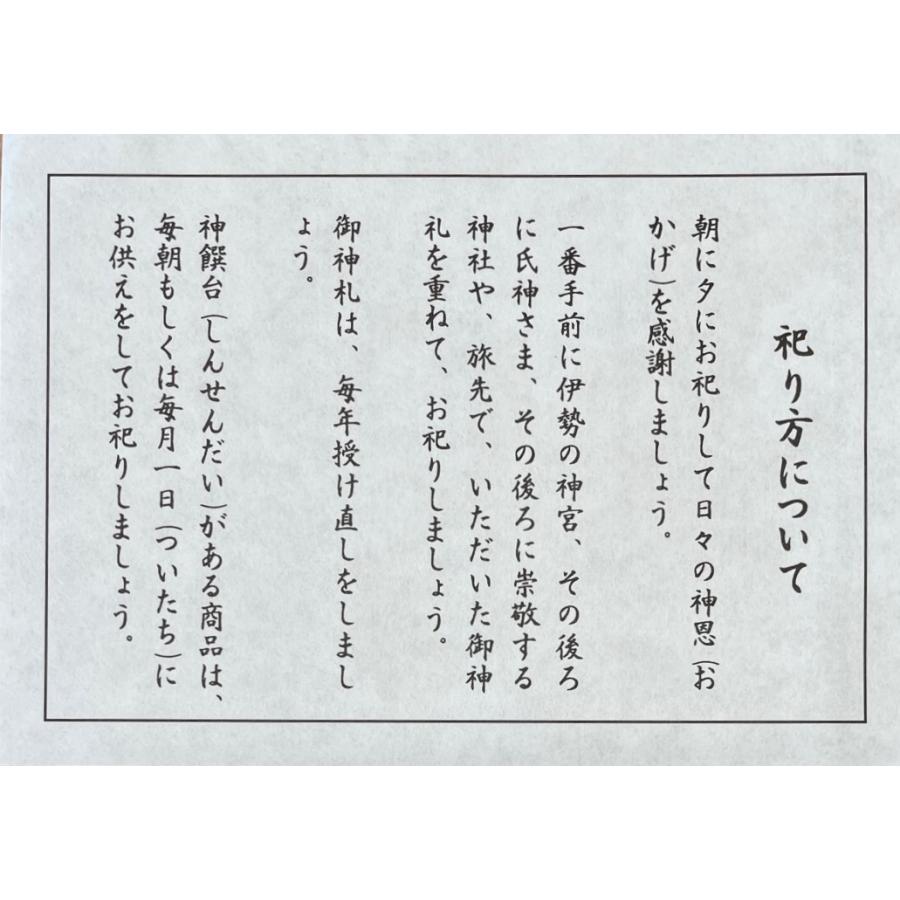 祀り方について
朝に夕にお祀りして日々の神恩（お
かげ）を感謝しましょう。
一番手前に伊勢の神宮、その後ろ
に氏神さま、その後ろに崇敬する
神社や、旅先で、いただいた御神
札を重ねて、お祀りしましょう。
御神札は、毎年授け直しをしまし
ょう。
神饌台（しんせんだい）がある商品は、
毎朝もしくは毎月一日（ついたち）に
お供えをしてお祀りしましょう。